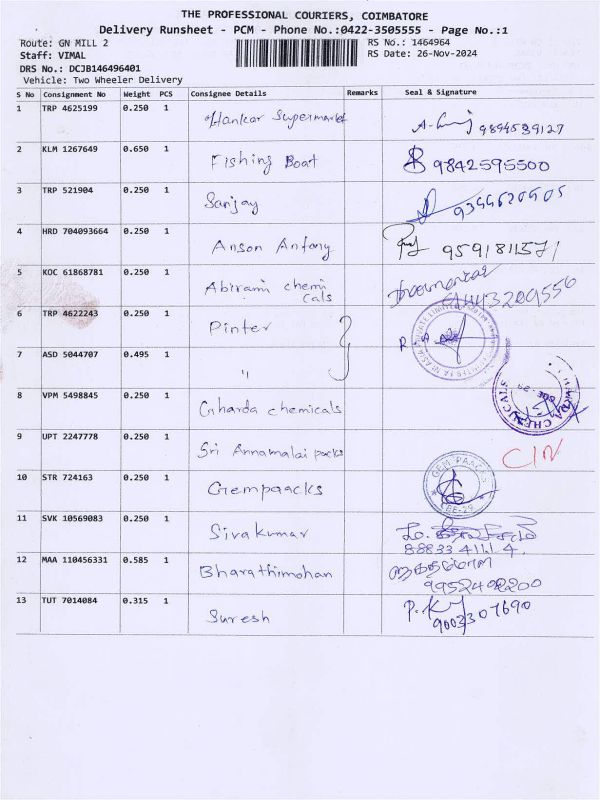 THE PROFESSIONAL COURIERS, COIMBATORE
Delivery Runsheet - PCM - Phone No.:0422-3505555 - Page No.:1
Route: GN MILL 2 RS No.: 1464964
Staff: VIMAL RS Date: 26-Nov-2024
DRS No.: DCJB146496401
Vehicle: Two Wheeler Delivery
S No Consignment No Weight PCS Consignee Details Remarks Seal & Signature
1 TRP 4625199 0.250 1 Hankar Supermarket 9894539127
2 KLM 1267649 0.650 1 Fishing Boat 9842595500
3 TRP 521904 0.250 1 Sanjay
4 HRD 704093664 0.250 1 Anson Antony
5 KOC 61868781 0.250 1 Abirami chemi
cals
6 TRP 4622243 0.250 1 Pinter
7 ASD 5044707 0.495 1 "
8 VPM 5498845 0.250 1 Gharda chemicals
9 UPT 2247778 0.250 1 Sri Annamalai packs
10 STR 724163 0.250 1 Gempaacks GEM PAACKS CBE-29
11 SVK 10569083 0.250 1 Sivakumar
88833 41114
12 MAA 110456331 0.585 1 Bharathimohan
9952402200
13 TUT 7014084 0.315 1 Suresh
9003307690